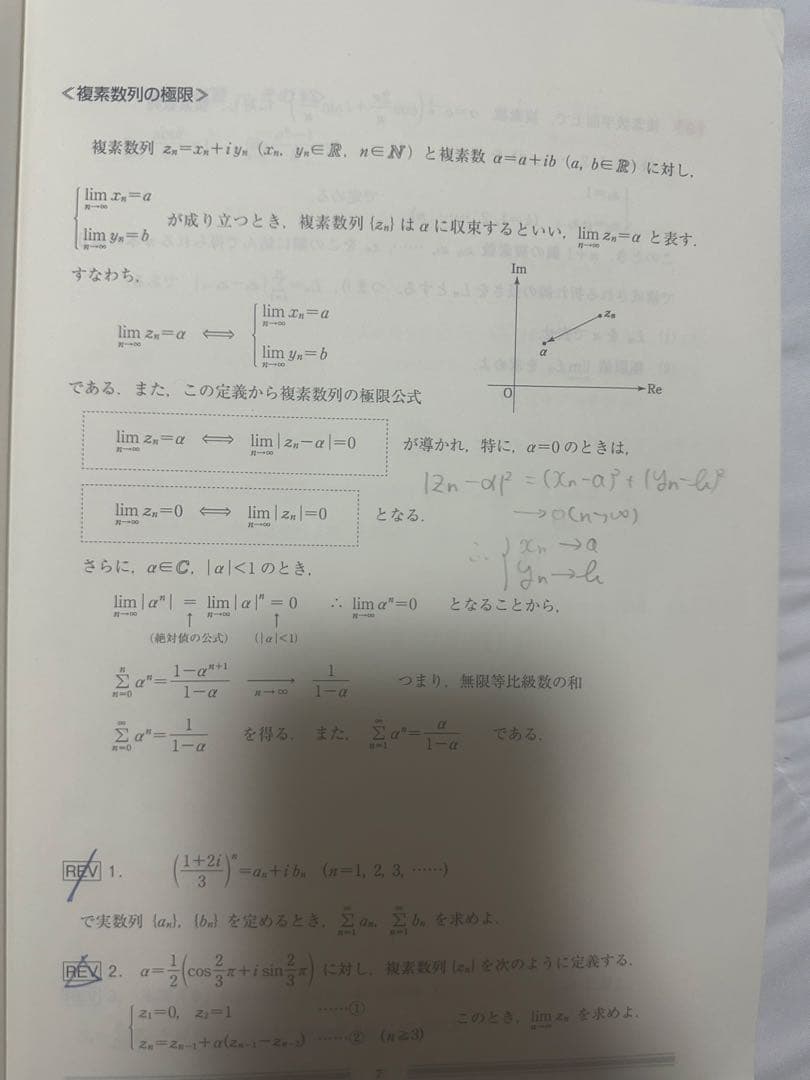 ≪複素数列の極限≫
複素数列 zₙ=xₙ+iyₙ (xₙ, yₙ∈ℝ, n∈ℕ) と複素数 α=a+ib (a, b∈ℝ) に対し,
{ lim_{n→∞} xₙ=a
lim_{n→∞} yₙ=b が成り立つとき, 複素数列{zₙ}はαに収束するといい, lim_{n→∞} zₙ=α と表す.
すなわち,
lim_{n→∞} zₙ=α ⟺ { lim_{n→∞} xₙ=a
lim_{n→∞} yₙ=b
Im
zₙ
α
O
Re
である. また, この定義から複素数列の極限公式
lim_{n→∞} zₙ=α ⟺ lim_{n→∞} |zₙ−α|=0 が導かれ, 特に, α=0 のときは,
lim_{n→∞} zₙ=0 ⟺ lim_{n→∞} |zₙ|=0 となる.
|zₙ−α|² = (xₙ−a)²+(yₙ−b)²
→0(n→∞)
∴ { xₙ→a
yₙ→b
さらに, α∈ℂ, |α|<1 のとき,
lim_{n→∞} |αⁿ| = lim_{n→∞} |α|ⁿ = 0 ∴ lim_{n→∞} αⁿ=0 となることから,
↑ ↑
(絶対値の公式) (|α|<1)
Σ_{n=0}^{n} αⁿ = (1−α^{n+1})/(1−α) →_{n→∞} 1/(1−α) つまり, 無限等比級数の和
Σ_{n=0}^{∞} αⁿ = 1/(1−α) を得る. また, Σ_{n=1}^{∞} αⁿ = α/(1−α) である.
REV 1. ((1+2i)/3)ⁿ = aₙ+ibₙ (n=1, 2, 3, ……)
で実数列 {aₙ}, {bₙ} を定めるとき, Σ_{n=1}^{∞} aₙ, Σ_{n=1}^{∞} bₙ を求めよ.
REV 2. α=1/2(cos 2/3 π+i sin 2/3 π) に対し, 複素数列{zₙ}を次のように定義する.
{ z₁=0, z₂=1 ……①
zₙ=zₙ₋₁+α(zₙ₋₁−zₙ₋₂) ……② (n≧3) このとき, lim_{n→∞} zₙ を求めよ.
7